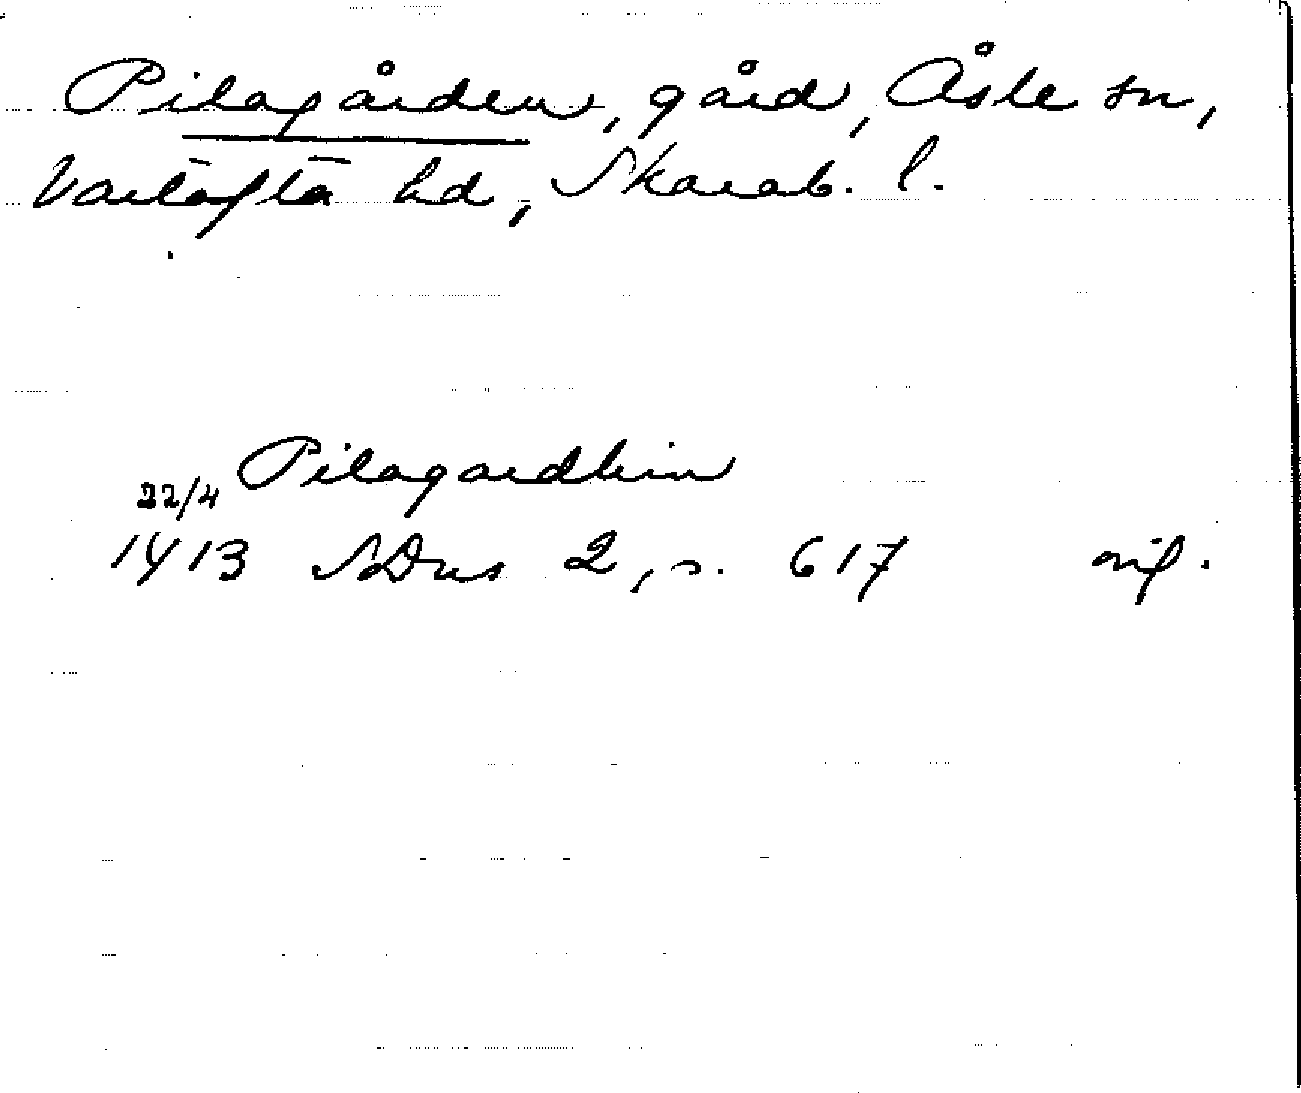 Pilagården, gård, Åsle sn,
Vartofta hd, Skarab. l.
Pilagardhin
22/4
1413 SDns 2, s. 617 orig.